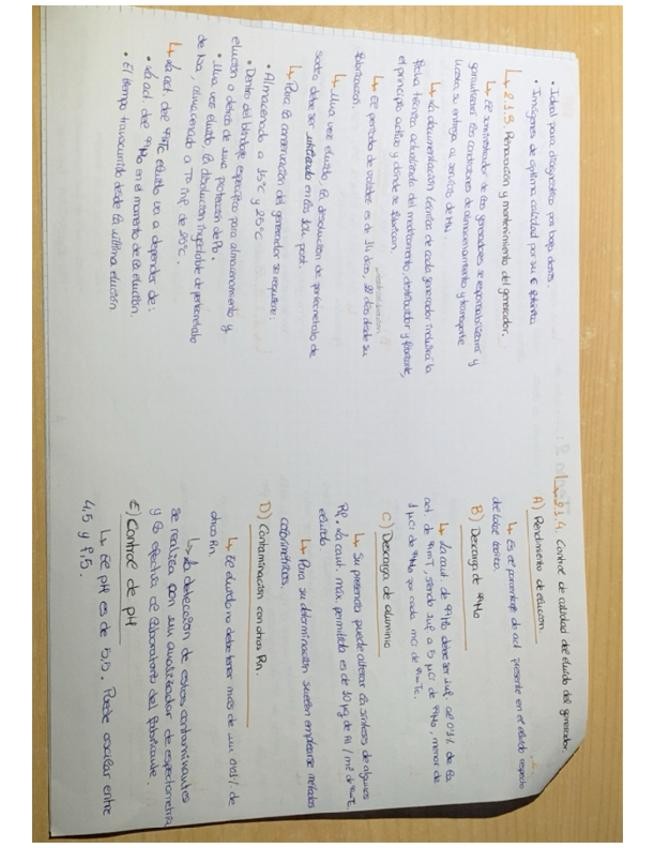 • Ideal para diagnóstico por baja dosis.
• Imágenes de óptima calidad por su E fotónica
↳ 2.1.3. Renovación y mantenimiento del generador.
↳ El suministrador de los generadores se responsabilizará y
garantizará las condiciones de almacenamiento y transporte
hasta su entrega al servicio de MN.
↳ La documentación técnica de cada generador incluirá la
ficha técnica actualizada del medicamento, distribuidor y fabricante,
el principio activo y donde se fabrican.
↳ El periodo de validez es de 14 días, 21 días desde su
fabricación.
↳ Una vez eluido, la disolución de pertecnetato de
sodio debe ser utilizado en las 12h post.
↳ Para la conservación del generador se requiere:
• Almacenado a 15°C y 25°C
• Dentro del blindaje específico para almacenamiento y
elución o detrás de una protección de Pb.
• Una vez eluido, la disolución inyectable de pertecnetato
de Na, almacenado a Tª inf de 25°C.
↳ La act. del 99mTc eluido va a depender de:
• La act. del 99Mo en el momento de la elución.
• El tiempo transcurrido desde la última elución
↳ 2.1.4. Control de calidad del eluido del generador.
A) Rendimiento de elución.
↳ Es el porcentaje de act presente en el eluido respecto
del total teórico.
B) Descarga de 99Mo
↳ La cant. de 99Mo debe ser inf al 0'1% de la
act de 99mT, siendo inf a 5 µCi de 99Mo, menor de
1 µCi de 99Mo por cada mCi de 99mTc.
C) Descarga de aluminio
↳ Su presencia puede alterar la síntesis de algunos
RF. La cant. máx permitida es de 10 µg de Al / ml de 99mTc
eluido.
↳ Para su determinación suelen emplearse métodos
colorimétricos.
D) Contaminación con otros Rn.
↳ El eluido no debe tener más de un 0'01% de
otros Rn.
↳ La detección de estos contaminantes
se realiza con un analizador de espectometría
y lo efectúa el laboratorio del fabricante.
E) Control de pH
↳ El pH es de 5,5. Puede oscilar entre
4,5 y 7,5.